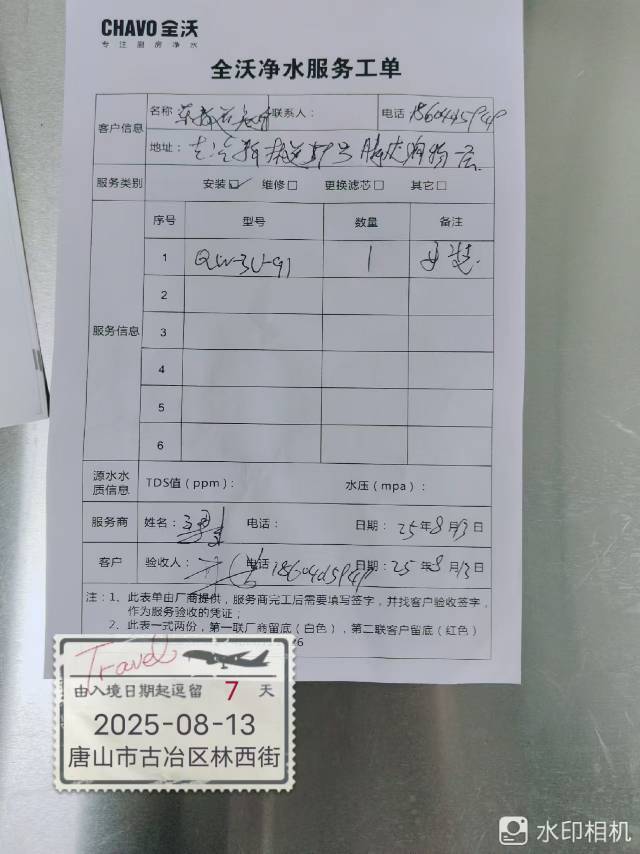 CHAVO 全沃
专注厨房净水
全沃净水服务工单
客户信息 名称 联系人： 电话
地址：
服务类别 安装☑ 维修□ 更换滤芯□ 其它□
服务信息 序号 型号 数量 备注
1 QW-3U-91 1 安装
2
3
4
5
6
源水水质信息 TDS值（ppm）： 水压（mpa）：
服务商 姓名： 电话： 日期：25年8月13日
客户 验收人： 电话 日期：25年8月13日
注：1、此表单由厂商提供，服务商完工后需要填写签字，并找客户验收签字，
作为服务验收的凭证；
2、此表一式两份，第一联厂商留底（白色），第二联客户留底（红色）
Travel
由入境日期起逗留 7 天
2025-08-13
唐山市古冶区林西街
水印相机